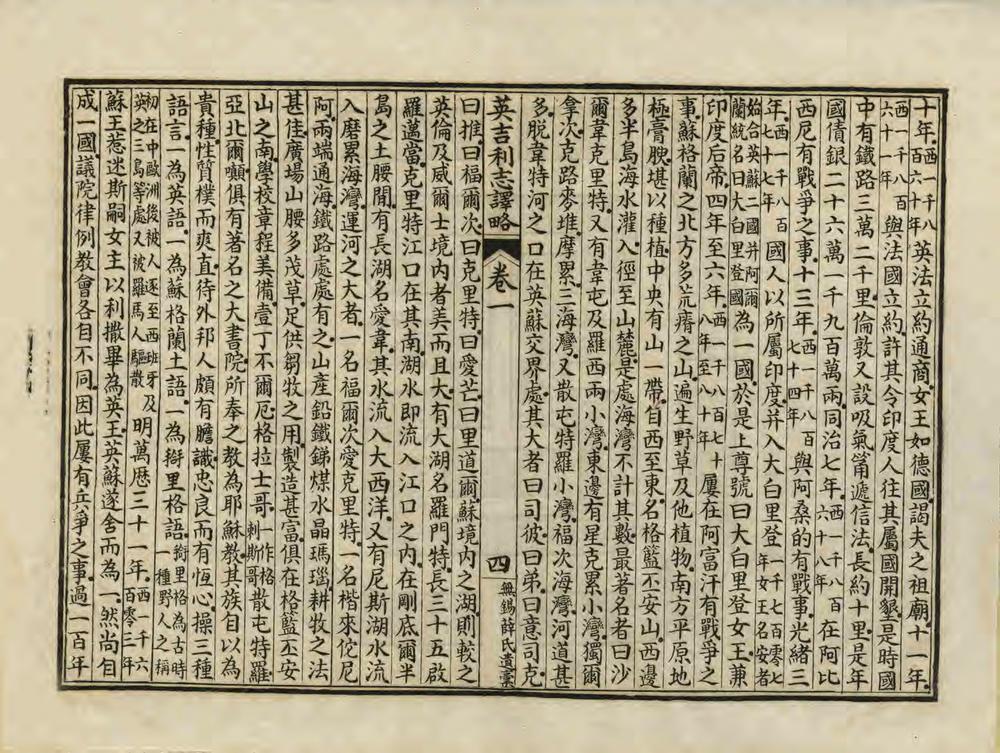 十年。西一千八百六十年英法立約通商。女王如德國。謁夫之祖廟。十一年。
西一千八百六十一年與法國立約。許其令印度人往其屬國開墾。是時國
中有鐵路三萬二千里。倫敦又設吸氣筩遞信法。長約十里。是年
國債銀二十六萬一千九百萬兩。同治七年。西一千八百六十八年在阿比
西尼有戰爭之事。十三年。西一千八百七十四年與阿桑的有戰事。光緒三
年。西一千八百七十七年國人以所屬印度并入大白里登一千七百零七年女王名安者
始合英蘇二國并阿爾蘭統名曰大白里登國為一國。於是上尊號曰大白里登女王兼
印度后帝。四年至六年。西一千八百七十八年至八十年屢在阿富汗有戰爭之
事。蘇格蘭之北方多荒瘠之山。遍生野草及他植物。南方平原地
極膏腴。堪以種植。中央有山一帶。自西至東。名格籃丕安山。西邊
多半島。海水灌入。徑至山麓。是處海灣不計其數。最著名者曰沙
爾韋克里特。又有韋屯及羅西兩小灣。東邊有星克累小灣。獨爾
拿次。克路麥堆。摩累三海灣。又散屯特羅小灣。福次海灣。河道甚
多。脫韋特河之口在英蘇交界處。其大者曰司彼。曰弟。曰意司克。
英吉利志譯略 卷一 四 無錫薛氏遺稾
曰推。曰福爾次。曰克里特。曰愛芒。曰里道爾。蘇境內之湖。則較之
英倫及威爾士境內者美而且大。有大湖名羅門特。長三十五啟
羅邁當。克里特江口在其南。湖水即流入江口之內。在剛底爾半
島之土腰間。有長湖名愛韋。其水流入大西洋。又有尼斯湖。水流
入磨累海灣。運河之大者。一名福爾次愛克里特。一名楷來佗尼
阿。兩端通海。鐵路處處有之。山產鉛鐵銻煤水晶瑪瑙。耕牧之法
甚佳。廣場山腰多茂草。足供芻牧之用。製造甚富。俱在格籃丕安
山之南。學校章程美備。壹丁不爾厄。格拉士哥。一作格剌斯哥散屯特羅。
亞北爾噸俱有著名之大書院。所奉之教為耶穌教。其族自以為
貴種。性質樸而爽直。待外邦人頗有膽識。忠良而有恆心。操三種
語言。一為英語。一為蘇格蘭土語。一為搿里格語。搿里格為古時一種野人之稱
初在中歐洲後被人逐至西班牙及英之三島等處又被羅馬人驅散明萬歷三十一年。西一千六百零三年
蘇王惹迷斯嗣女主以利撒畢為英王。英蘇遂合而為一。然尚自
成一國。議院律例教會各自不同。因此屢有兵爭之事。過一百年